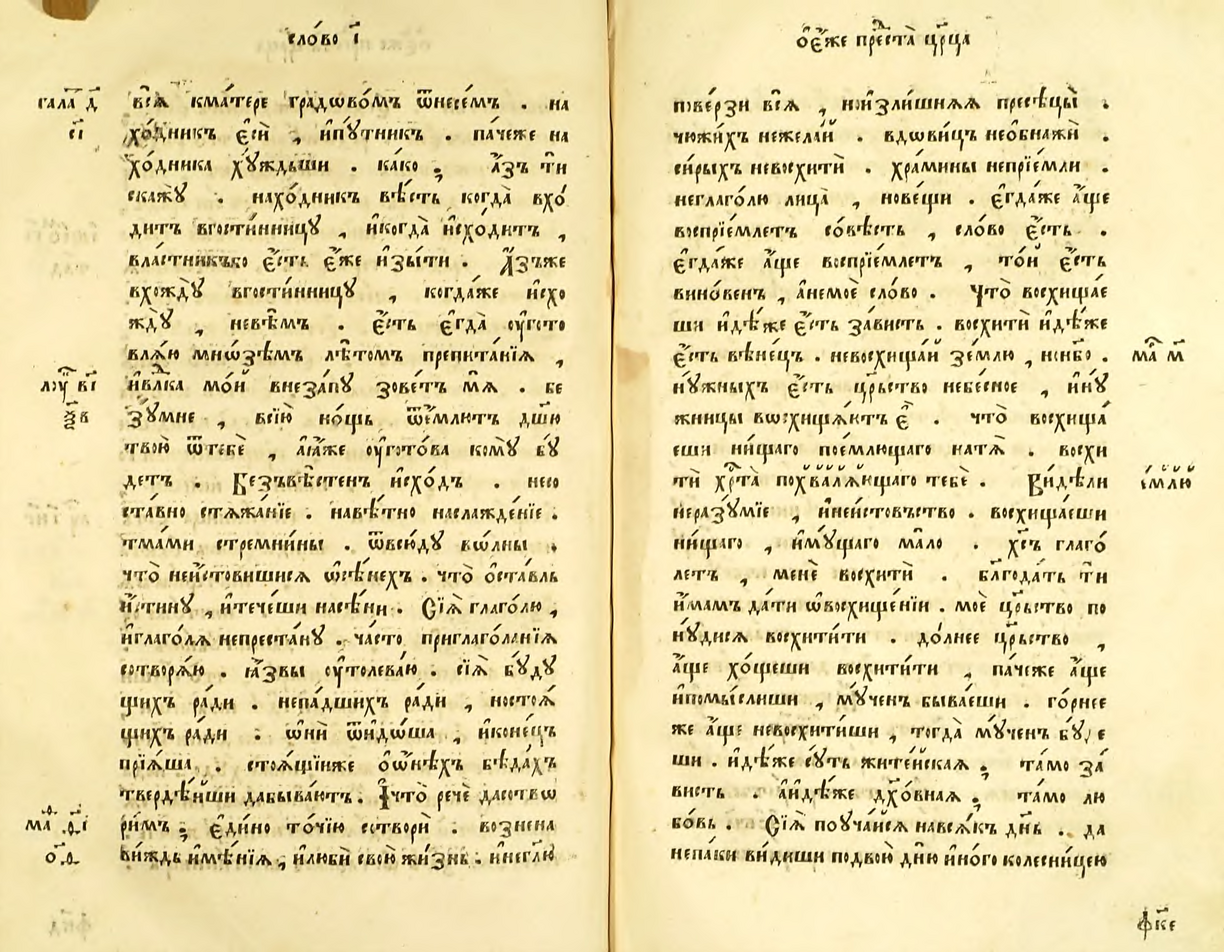 сло́во і҃
гала́ д҃
є҃і
всѧ̀ кма́тере градѡво́мъ ѿнесе́мъ . на
хо́дникъ є҆сѝ , и҆пꙋ́тникъ . па́чеже на
хо́дника хꙋ́ждьши . ка́ко ; а҆́зъ тѝ
скажꙋ̀ . нахо́дникъ вѣ́сть когда̀ вхо́
дитъ вгости́нницꙋ , и҆когда̀ и҆схо́дитъ ,
вла́стникъко є҆́сть є҆́же и҆зы́ти . А҆́зъже
вхождꙋ̀ вгости́нницꙋ , когда́же и҆схо
ждꙋ̀ , невѣ́мъ . є҆́сть є҆гда̀ ᲂу҆гото
влѧ́ю мнѡ́зѣмъ лѣ́томъ препита́нїѧ ,
лꙋ́ в҃і
ѯ҃в
и҆влⷣка мо́й внеза́пꙋ зове́тъ мѧ̀ . бе
зꙋ́мне , всїю̀ но́щь ѿе́млютъ дш҃ю
твою̀ ѿтебѐ , а҆ꙗ҆́же ᲂу҆гото́ва комꙋ̀ бꙋ́
детъ . Безъвѣ́стенъ и҆схо́дъ . несо
ста́вно стѧжа́нїе . навѣ́тно наслажде́нїе .
тма́ми стремни́ны . ѿвсю́дꙋ во́лны .
что̀ неи́стовишисѧ ѡ҆сѣ́нехъ . что̀ ѡ҆ста́вль
и҆́стинꙋ , и҆тече́ши насѣ́ни . Сїѧ̀ глаго́лю ,
и҆глаго́лѧ непреста́нꙋ . ча́сто приглаго́ланїѧ
сотворѧ́ю . ꙗ҆́звы ᲂу҆толева́ю . сїѧ̀ бꙋ́дꙋ
щихъ ра́ди . непа́дшихъ ра́ди , ностоѧ́
щихъ ра́ди . ѡ҆нѝ ѿидо́ша , и҆коне́цъ
прїѧ́ша . стоѧ́щїиже ѻ҆ѡ҆нѣ́хъ бѣда́хъ
тверди́йши дабыва́ютъ . І҆что̀ речѐ дасотво
ма .ѳ҃і
ѻ҃.ѳ
ри́мъ ; є҆ди́но то́чїю сотворѝ . возне́на
ви́ждь и҆мѣ́нїѧ , и҆любѝ свою̀ жи́знь . и҆негл҃ю
ѻ҆є҆́же преⷣста̀ црⷪ҇ца
пове́рзи всѧ̀ , нои҆зли́шнѧѧ пресѣцы̀ .
чюжи́хъ нежела́й . вдови́цъ необнажѝ .
си́рыхъ невосхитѝ . хра́мины непрїе́мли .
неглаго́лю лица̀ , нове́щи . є҆гда́же а҆́ще
воспрїе́млетъ со́вѣсть , сло́во є҆́сть .
є҆гда́же а҆́ще воспрїе́млетъ , то́й є҆́сть
вино́венъ , а҆немоѐ сло́во . Что̀ восхища́е
ши и҆дѣ́же є҆́сть за́висть . восхитѝ и҆дѣ́же
є҆́сть вѣне́цъ . невосхища́й зе́млю , нон҃бо .
маⷴ҇ м҃
нꙋ́жныхъ є҆́сть црⷭ҇тво небе́сное , и҆нꙋ́
жницы восхища́ютъ є҆̀ . что̀ восхища́
еши ни́щаго пое́млющаго натѧ̀ . восхи
тѝ хрⷭ҇та̀ похвалѧ́ющаго тебѐ . Ви́дѣли
неразꙋ́мїе , и҆неи́стовъство . восхища́еши
ни́щаго , и҆мꙋ́щаго ма́ло . хс҃ъ глаго́
летъ , менѐ восхитѝ . благода́ть тѝ
и҆́мамъ да́ти ѡ҆восхище́нїи . моѐ црⷭ҇тво по
нꙋ́дисѧ восхити́ти . до́лнее црⷭ҇тво ,
а҆́ще хо́щеши восхити́ти , па́чеже а҆́ще
и҆помы́слиши , мꙋ́ченъ быва́еши . го́рнее
же а҆́ще невосхи́тиши , тогда̀ мꙋ́ченъ бꙋ́де
ши . и҆дѣ́же сꙋ́ть жите́йскаѧ ; та́мо за́
висть . а҆идѣ́же дх҃о́внаѧ ; та́мо лю
бо́вь . Сїѧ̀ поꙋча́йсѧ навсѧ́къ дн҃ь . да
непа́ки ви́диши подвою̀ дн҃ю и҆но́го колесни́цею
фк҃є